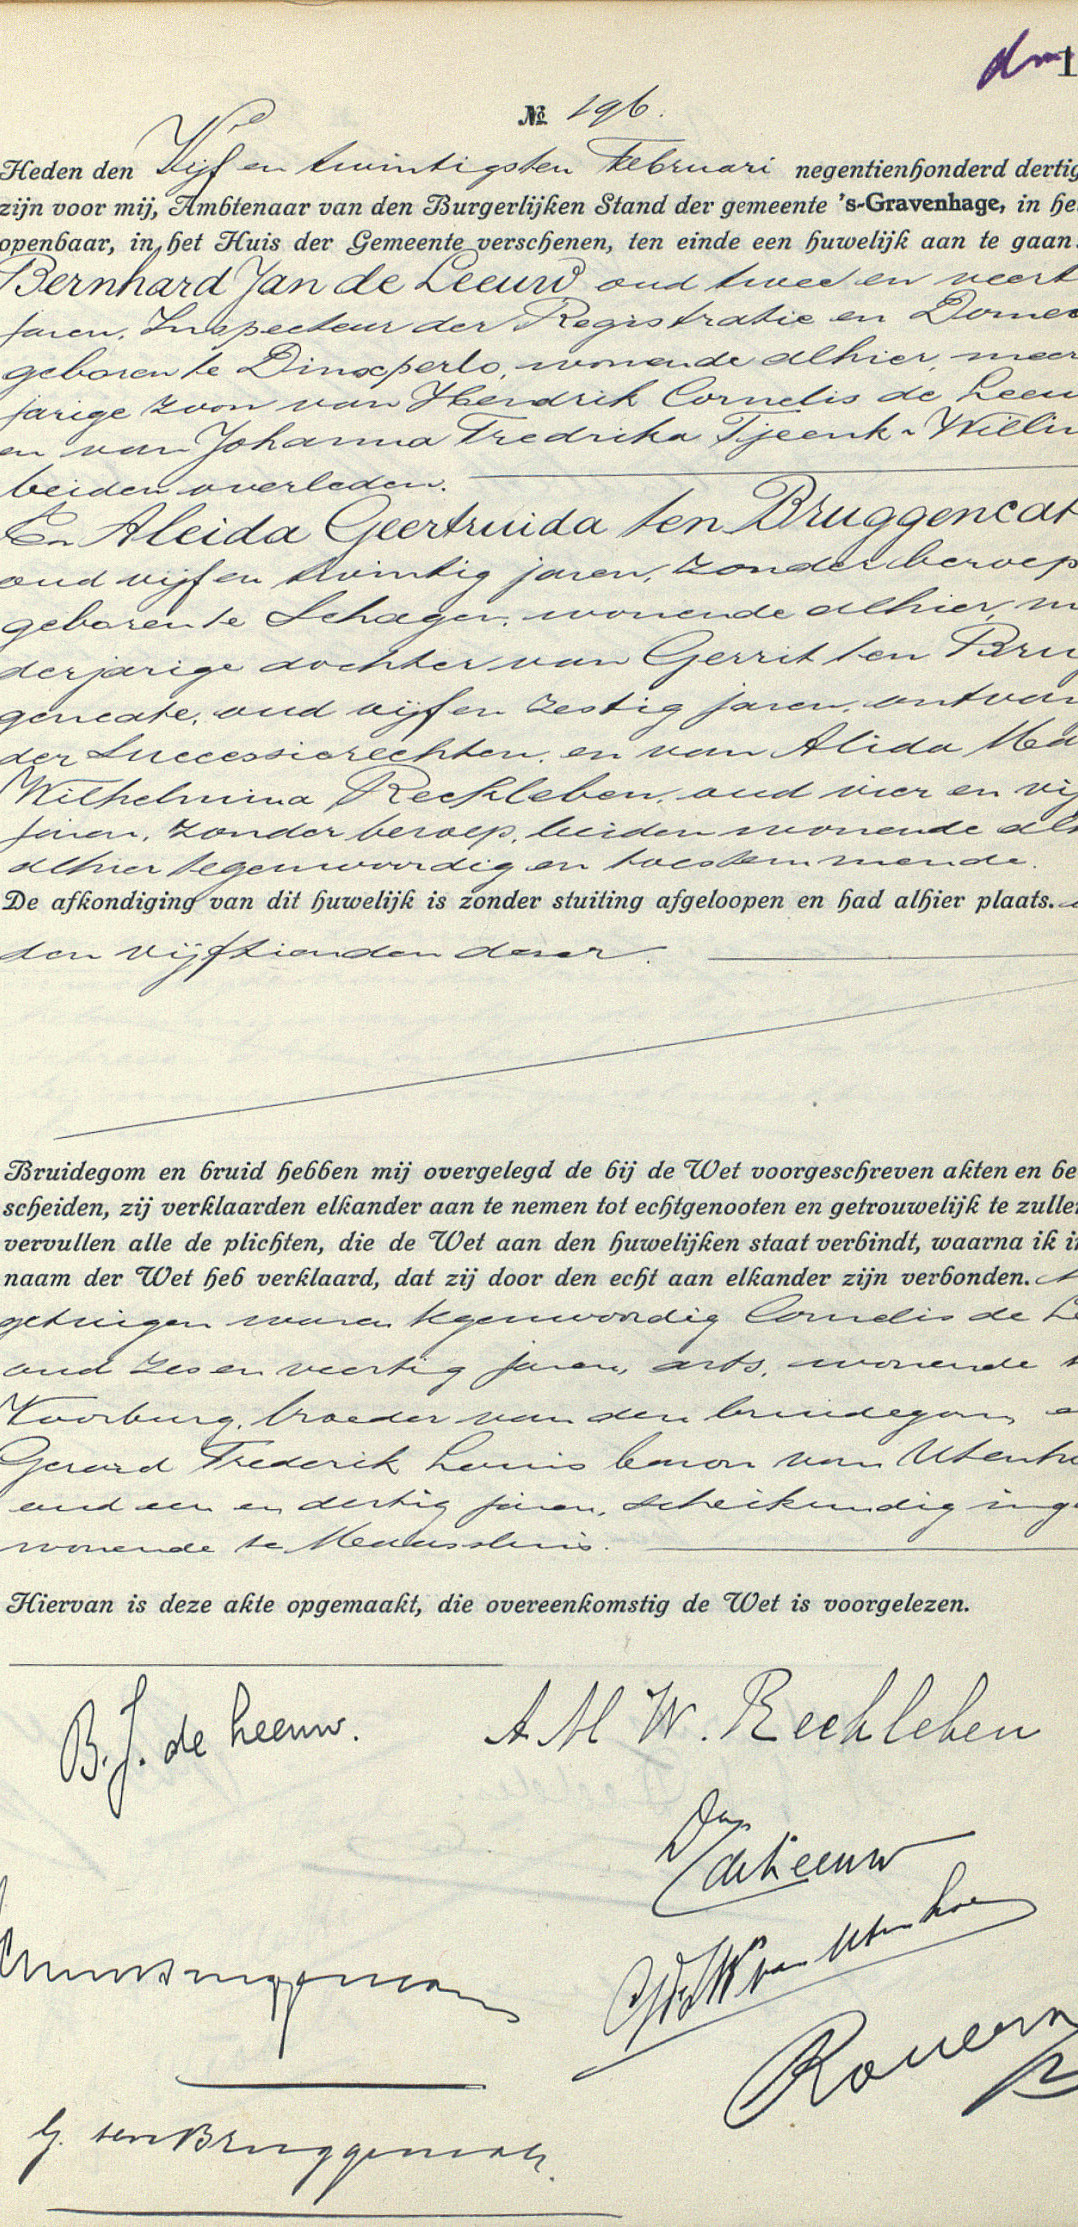 1
№ 196.
Heden den Vijf en twintigsten Februari negentienhonderd dertig
zijn voor mij, Ambtenaar van den Burgerlijken Stand der gemeente 's-Gravenhage, in he
openbaar, in het Huis der Gemeente verschenen, ten einde een huwelijk aan te gaan:
Bernhard Jan de Leeuw oud twee en veert
jaren, Inspecteur der Registratie en Domei
geboren te Dinxperlo, wonende alhier, meer
jarige zoon van Hendrik Cornelis de Leeu
en van Johanna Fredrika Tjeenk-Willin
beiden overleden.
En Aleida Geertruida ten Bruggencat
oud vijf en twintig jaren, zonder beroep
geboren te Schagen, wonende alhier, m
derjarige dochter van Gerrit ten Brug
gencate, oud vijf en zestig jaren, ontvan
der Successierechten, en van Alida Ma
Wilhelmina Reckleben, oud vier en vij
jaren, zonder beroep, beiden wonende al
alhier tegenwoordig en toestemmende.
De afkondiging van dit huwelijk is zonder stuiting afgeloopen en had alhier plaats.
den vijftienden dezer.
Bruidegom en bruid hebben mij overgelegd de bij de Wet voorgeschreven akten en be
scheiden, zij verklaarden elkander aan te nemen tot echtgenooten en getrouwelijk te zullen
vervullen alle de plichten, die de Wet aan den huwelijken staat verbindt, waarna ik in
naam der Wet heb verklaard, dat zij door den echt aan elkander zijn verbonden.
getuigen waren tegenwoordig Cornelis de Le
oud zes en veertig jaren, arts, wonende
Voorburg, broeder van den bruidegom, e
Gerard Frederik Louis baron van Utenho
oud een en dertig jaren, scheikundig inge
wonende te Maassluis.
Hiervan is deze akte opgemaakt, die overeenkomstig de Wet is voorgelezen.
B. J. de Leeuw. A M W. Reckleben
de Leeuw
van Utenhove
G. ten Bruggencate.